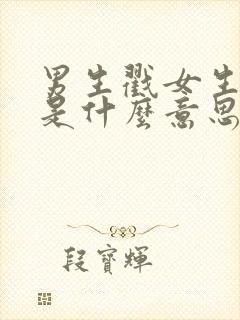 男生戳女生
是什麼意思
段寶輝